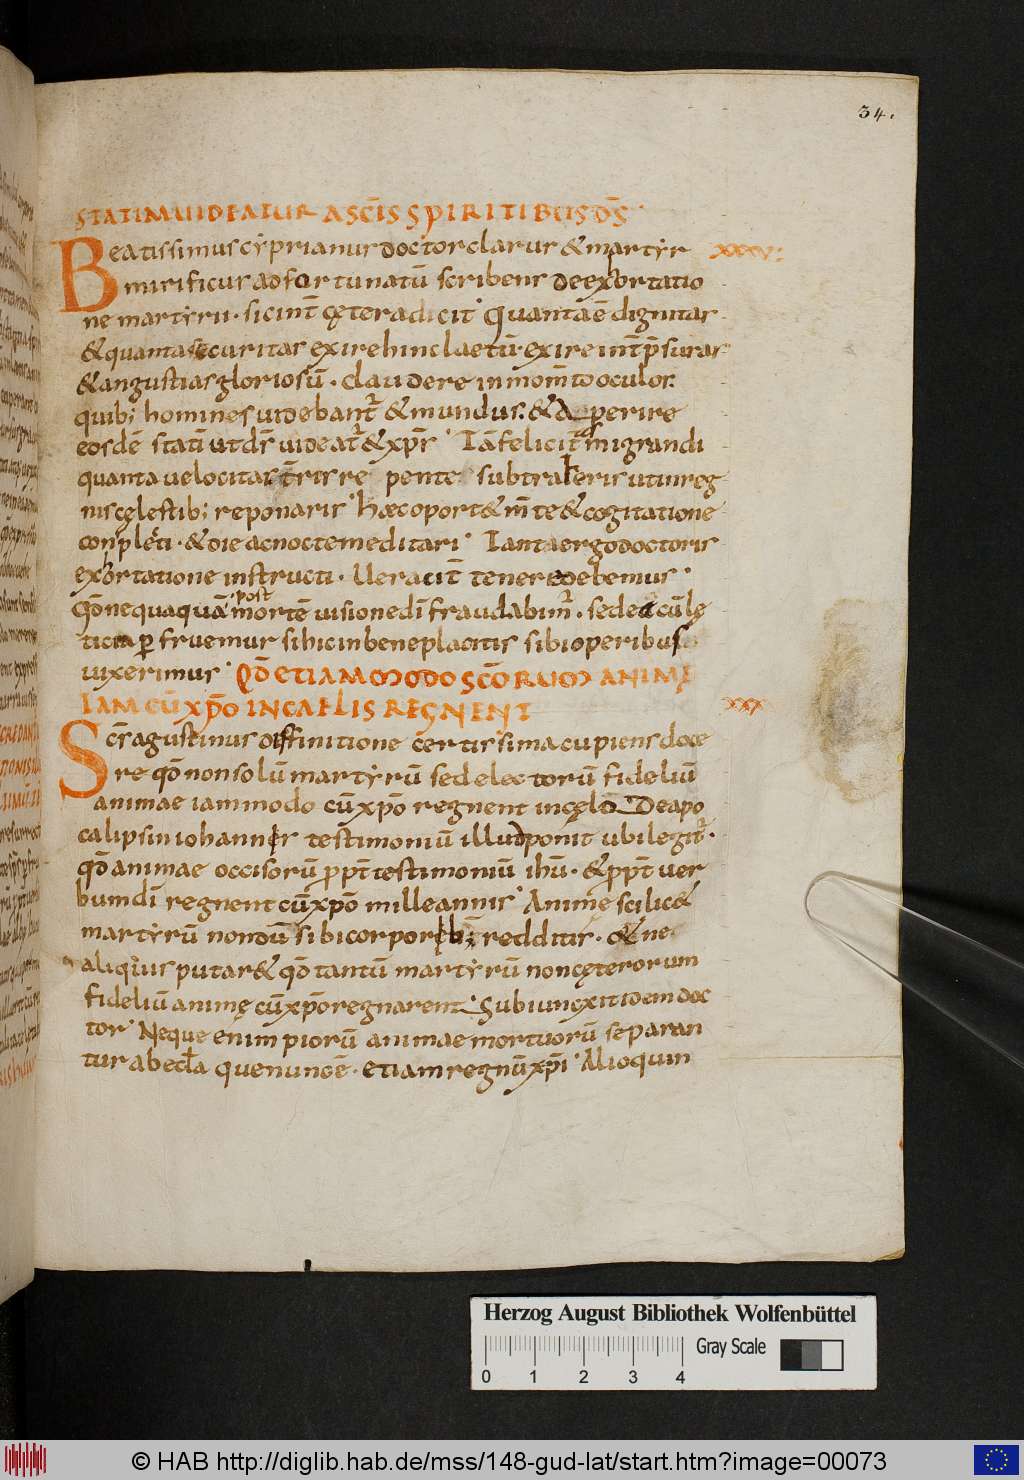 34.
STATIM UIDEATUR A SC̅IS SPIRITIBUS D̅S
Beatissimus cyprianus doctor clarus & martyr XXXV:
mirificus ad fortunatū scribens de exhortatio
ne martyrii · sic int̅ cętera dicit · Quanta ē dignitas
& quanta securitas exire hinc laetū · exire int̅ p̅suras
& angustias gloriosū · claudere in mom̅to oculos
quib; homines uidebant̅ & mundus · & aperire
eosdē statī ut d̅s uideat̅ & xp̅s · Iā felicit̅ migrandi
quanta uelocitas t̅ris repente subtraheris ut in reg
nis cęlestib; reponaris · haec oport& m̅te & cogitatione
conplecti · & die ac nocte meditari · Tanta ergo doctoris
exhortatione instructi · Ueracit̅ tenere debemus ·
Qđ nequaquā post mortē uisione dī fraudabim̅ · sede ac cū lę
ticia p̲ fruemur si hic in beneplacitis sibi operibus
uixerimus · QĐ ETIAM MODO SC̅ORUM ANIMĘ
IAM CŪ XP̅O IN CAELIS REGNENT XXXVI
Sc̅s agustinus diffinitione certissima cupiens doce
re qđ non solū martyrū sed electorū fidelium
animae iam modo cū xp̅o regnent in cęlo De apo
calipsin iohannis testimoniū illud ponit ubi legit̅ ·
qđ animae occisorū ppt̅ testimoniū ih̅u · & ppt̅ uer
bum dī regnent cū xp̅o mille annis · Animę scilic&
martyrū nondū sibi corporib; redditis · & ne
aliquis putar& qđ tantū martyrū non cęterorum
fidelium animę cū xp̅o regnarent · Subiuncxit idem doc
tor · Neque enim piorū animae mortuorū separan
tur ab eccl̅a que nunc ē · etiam regnū xp̅i · Alioquin
Herzog August Bibliothek Wolfenbüttel
0 1 2 3 4 Gray Scale
© HAB http://diglib.hab.de/mss/148-gud-lat/start.htm?image=00073